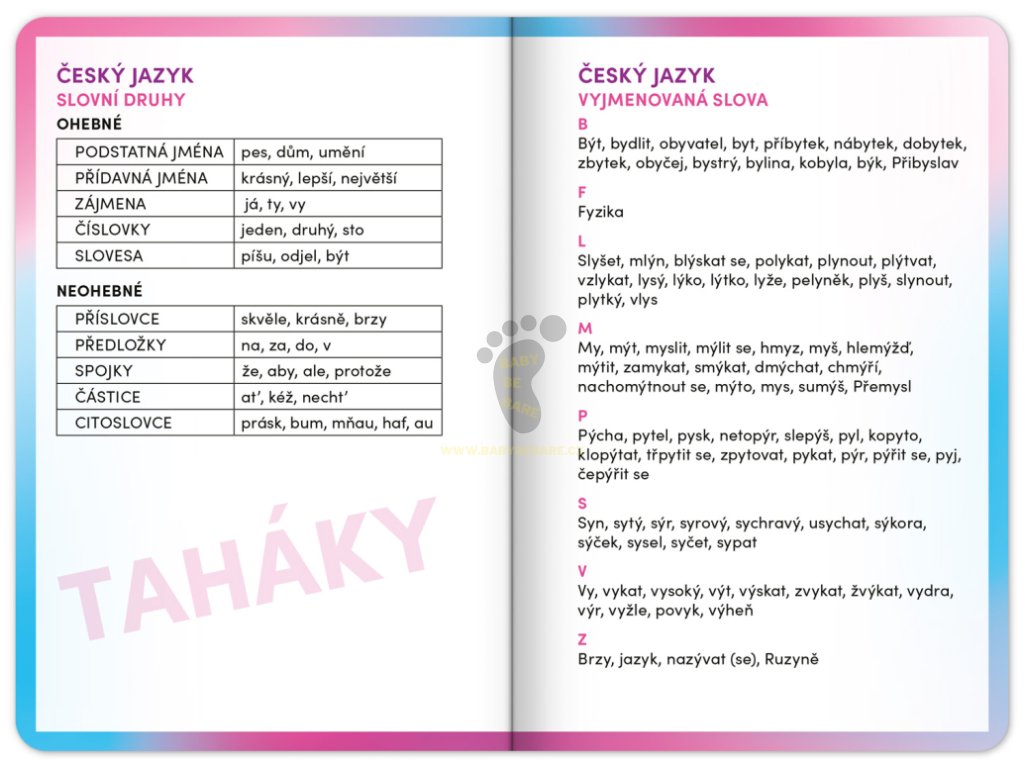 ČESKÝ JAZYK
SLOVNÍ DRUHY
OHEBNÉ
PODSTATNÁ JMÉNA pes, dům, umění
PŘÍDAVNÁ JMÉNA krásný, lepší, největší
ZÁJMENA já, ty, vy
ČÍSLOVKY jeden, druhý, sto
SLOVESA píšu, odjel, být
NEOHEBNÉ
PŘÍSLOVCE skvěle, krásně, brzy
PŘEDLOŽKY na, za, do, v
SPOJKY že, aby, ale, protože
ČÁSTICE ať, kéž, nechť
CITOSLOVCE prásk, bum, mňau, haf, au
TAHÁKY
ČESKÝ JAZYK
VYJMENOVANÁ SLOVA
B
Být, bydlit, obyvatel, byt, příbytek, nábytek, dobytek,
zbytek, obyčej, bystrý, bylina, kobyla, býk, Přibyslav
F
Fyzika
L
Slyšet, mlýn, blýskat se, polykat, plynout, plýtvat,
vzlykat, lysý, lýko, lýtko, lyže, pelyněk, plyš, slynout,
plytký, vlys
M
My, mýt, myslit, mýlit se, hmyz, myš, hlemýžď,
mýtit, zamykat, smýkat, dmýchat, chmýří,
nachomýtnout se, mýto, mys, sumýš, Přemysl
P
Pýcha, pytel, pysk, netopýr, slepýš, pyl, kopyto,
klopýtat, třpytit se, zpytovat, pykat, pýr, pýřit se, pyj,
čepýřit se
S
Syn, sytý, sýr, syrový, sychravý, usychat, sýkora,
sýček, sysel, syčet, sypat
V
Vy, vykat, vysoký, výt, výskat, zvykat, žvýkat, vydra,
výr, vyžle, povyk, výheň
Z
Brzy, jazyk, nazývat (se), Ruzyně
BABY
SE
RARE